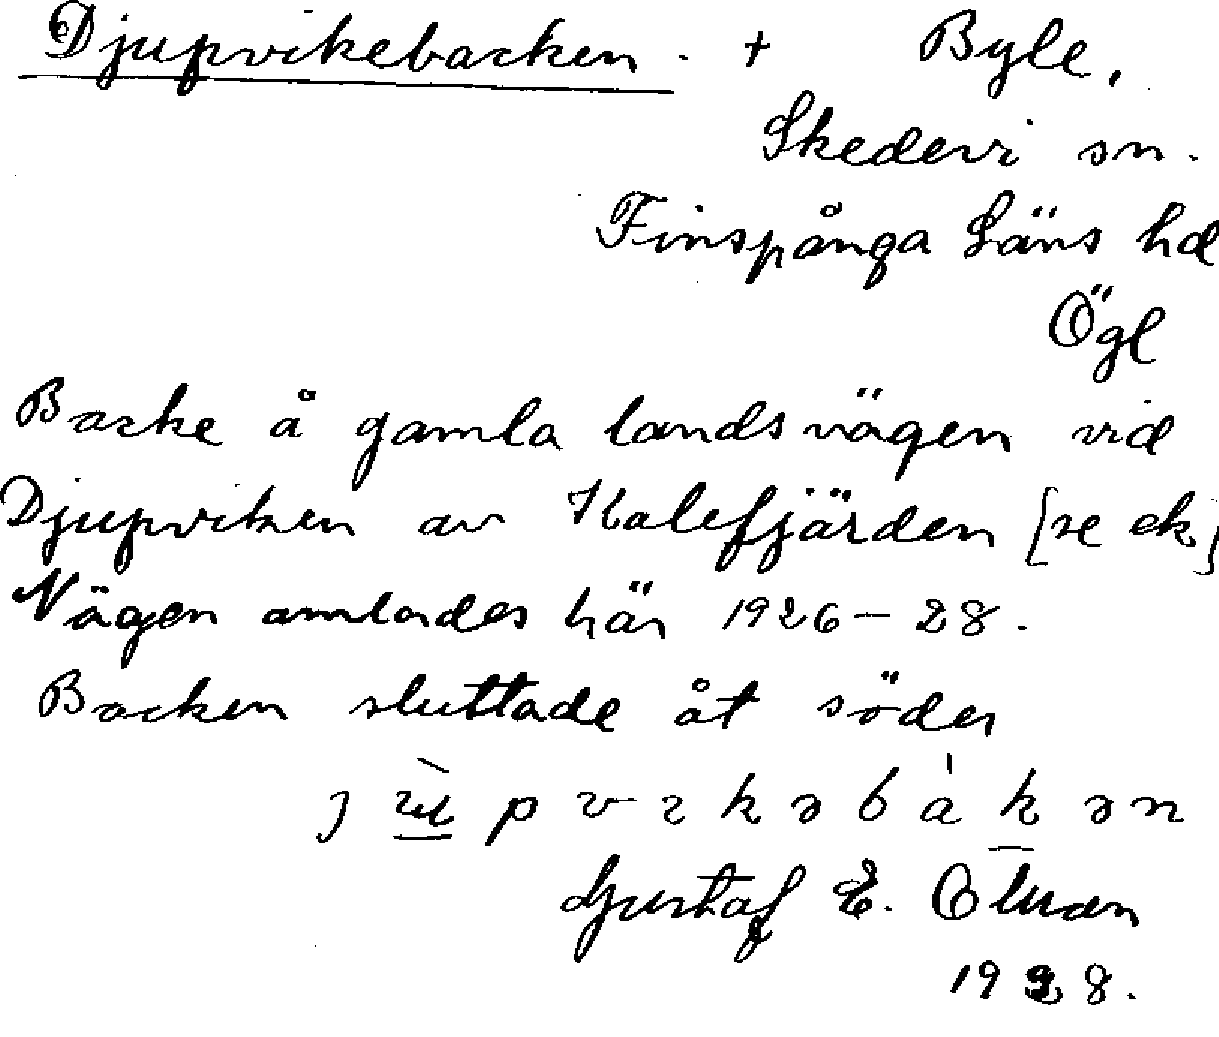 Djupvikebacken. + Byle,
Skedevi sn.
Finspånga Läns hd
Ögl
Backe å gamla landsvägen vid
Djupviken av Kalefjärden [se ek]
Vägen omlades här 1926-28.
Backen sluttade åt söder
Gustaf E.
1928.